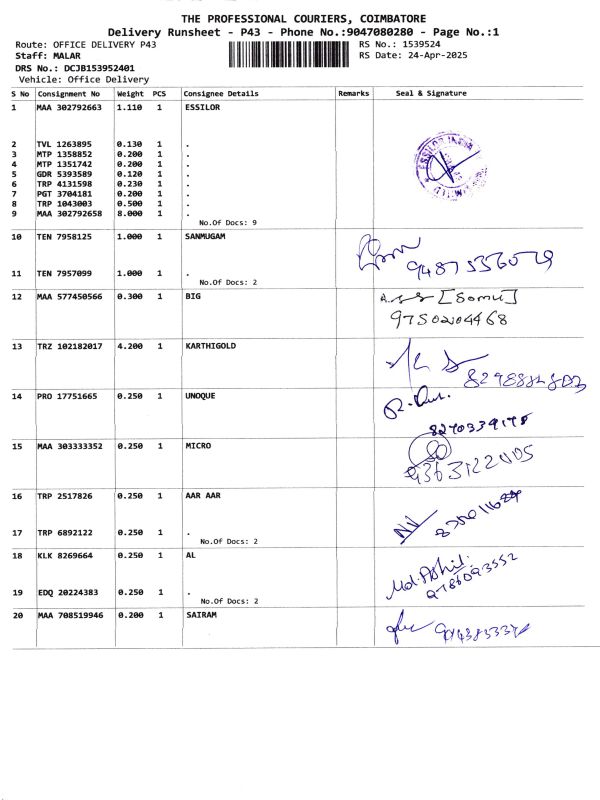 THE PROFESSIONAL COURIERS, COIMBATORE
Delivery Runsheet - P43 - Phone No.:9047080280 - Page No.:1
Route: OFFICE DELIVERY P43 RS No.: 1539524
Staff: MALAR RS Date: 24-Apr-2025
DRS No.: DCJB153952401
Vehicle: Office Delivery
S No Consignment No Weight PCS Consignee Details Remarks Seal & Signature
1 MAA 302792663 1.110 1 ESSILOR
2 TVL 1263895 0.130 1 .
3 MTP 1358852 0.200 1 .
4 MTP 1351742 0.200 1 .
5 GDR 5393589 0.120 1 .
6 TRP 4131598 0.230 1 .
7 PGT 3704181 0.200 1 .
8 TRP 1043003 0.500 1 .
9 MAA 302792658 8.000 1 .
No.Of Docs: 9
10 TEN 7958125 1.000 1 SANMUGAM
11 TEN 7957099 1.000 1 .
No.Of Docs: 2
12 MAA 577450566 0.300 1 BIG [Somu]
9750204468
13 TRZ 102182017 4.200 1 KARTHIGOLD
14 PRO 17751665 0.250 1 UNOQUE
15 MAA 303333352 0.250 1 MICRO
16 TRP 2517826 0.250 1 AAR AAR
17 TRP 6892122 0.250 1 .
No.Of Docs: 2
18 KLK 8269664 0.250 1 AL
Md.Abhil.
9786093552
19 EDQ 20224383 0.250 1 .
No.Of Docs: 2
20 MAA 708519946 0.200 1 SAIRAM